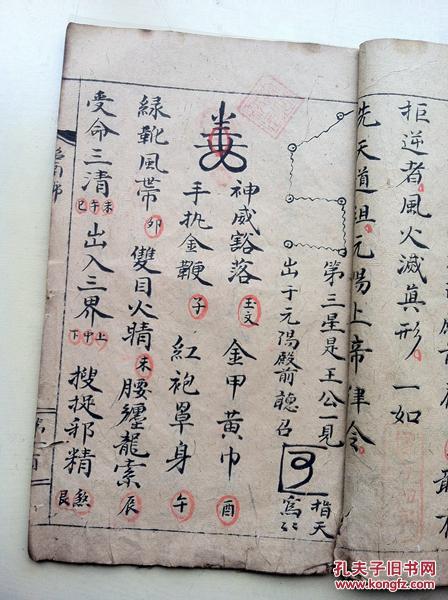 拒逆者風火滅真形一如
先天道祖元陽上帝律令
第三星是王公一見
出于元陽殿前聽召
指天
寫
神威豁落 王文 金甲黃巾 酉
手执金鞭 子 紅袍罩身 午
綠靴風帶 卯 雙目火睛 未 腰纏龍索 辰
受命三清 未午巳 出入三界 上中下 搜捉邪精 煞艮
孔夫子旧书网